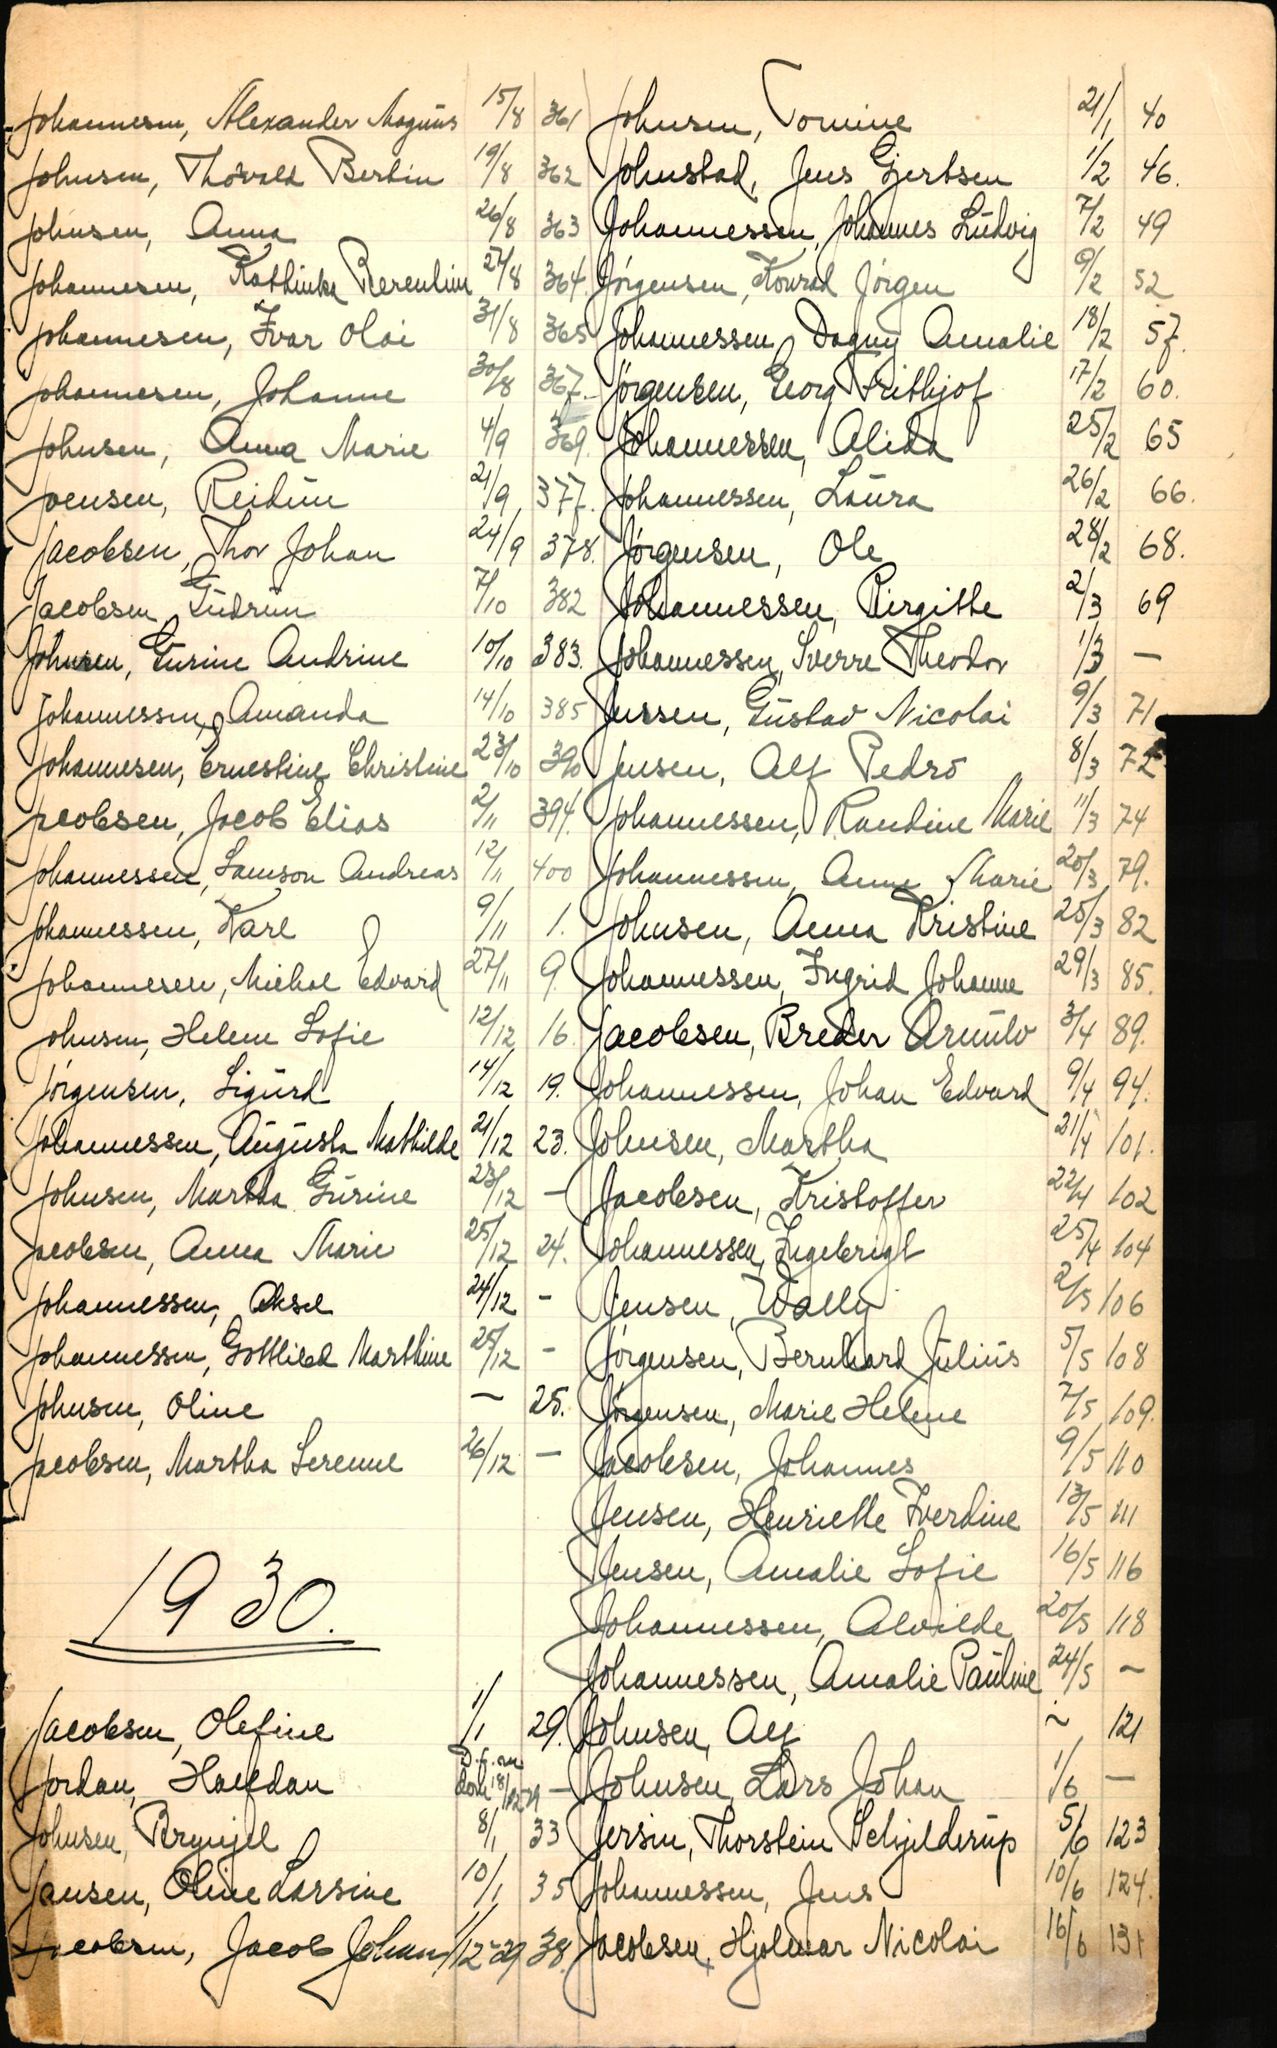 Johannesen, Alexander Magnus 15/8 361
Johnsen, Thorvald Bertin 19/8 362
Johnsen, Anna 26/8 363
Johannesen, Kathinka Berentine 27/8 364.
Johannesen, Ivar Olai 31/8 365
Johannesen, Johanne 30/8 367.
Johnsen, Anna Marie 4/9 369.
Joensen, Reidun 21/9 377.
Jacobsen, Thor Johan 24/9 378.
Jacobsen, Gudrun 7/10 382
Johnsen, Gurine Andrine 10/10 383.
Johannessen, Amanda 14/10 385
Johannesen, Ernestine Christine 23/10 390
Jacobsen, Jacob Elias 2/11 394.
Johannessen, Samson Andreas 12/11 400
Johannessen, Karl 9/11 1.
Johannesen, Michal Edvard 27/11 9.
Johnsen, Helene Sofie 12/12 16.
Jörgensen, Sigurd 14/12 19.
Johannessen, Augusta Mathilde 21/12 23.
Johnsen, Martha Gurine 23/12 —
Jacobsen, Anna Marie 25/12 24.
Johannessen, Aksel 24/12 -
Johannessen, Gottlieb Marthine 25/12 -
Johnsen, Oline — 25.
Jacobsen, Martha Serenne 26/12 —
1930.
Jacobsen, Olefine 1/1 29.
Jordan, Halfdan D.f. 18/12 29 —
Johnsen, Brynjel 8/1 33
Jansen, Oline Larsine 10/1 35
Jacobsen, Jacob Johan 1/12-29 38.
Johnsen, Tomine 21/1 40
Johnstad, Jens Gjertsen 1/2 46.
Johannessen, Johannes Ludvig 7/2 49
Jörgensen, Konrad Jörgen 9/2 52
Johannessen, Dagny Amalie 18/2 57.
Jörgensen, Georg Frithjof 17/2 60.
Johannessen, Alida 25/2 65
Johannessen, Laura 26/2 66.
Jørgensen, Ole 28/2 68.
Johannessen, Birgitte 2/3 69
Johannessen, Sverre Theodor 1/3 —
Jensen, Gustav Nicolai 9/3 71
Jensen, Alf Pedro 8/3 72
Johannessen, Randine Marie 11/3 74
Johannessen, Anne Marie 20/3 79.
Johnsen, Anna Kristine 25/3 82
Johannessen, Ingrid Johanne 29/3 85.
Jacobsen, Breder Arnulv 3/4 89.
Johannessen, Johan Edvard 9/4 94.
Johnsen, Martha 21/4 101.
Jacobsen, Kristoffer 22/4 102
Johannessen, Ingebrigt 25/4 104
Jensen, Wally 2/5 106
Jørgensen, Bernhard Julius 5/5 108
Jørgensen, Marie Helene 7/5 109.
Jacobsen, Johannes 9/5 110
Jensen, Henriette Iverdine 13/5 111
Jensen, Amalie Sofie 16/5 116
Johannessen, Alvilde 20/5 118
Johannessen, Amalie Pauline 24/5 —
Johnsen, Alf ~ 121
Johnsen, Lars Johan 1/6 —
Jersin, Thorstein Schjelderup 5/6 123
Johannessen, Jens 10/6 124.
Jacobsen, Hjalmar Nicolai 16/6 131